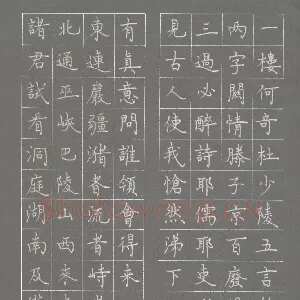 一樓何奇杜少陵五言
兩字關情滕子京百廢
三過必醉詩耶儒耶吏
見古人使我愴然涕下
諸君試看洞庭湖南及
北通巫峽巴陵山西來
東連巖疆潴者流者峙
有真意問誰領會得來